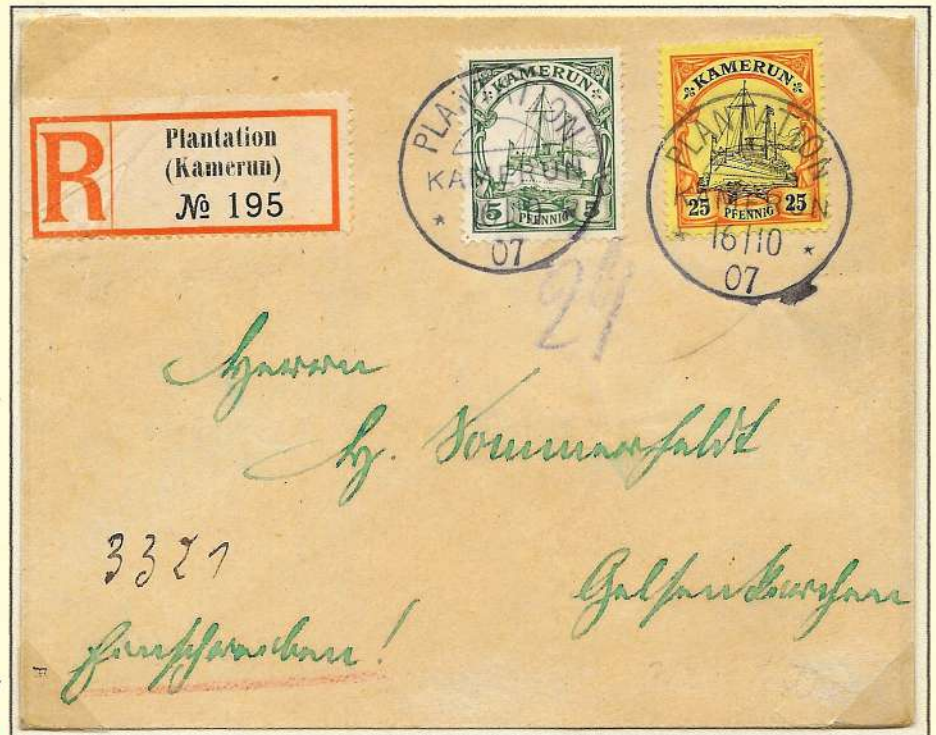 R
Plantation
(Kamerun)
№ 195
KAMERUN
5 PFENNIG 5
PLANTATION
KAMERUN
* *
07
KAMERUN
25 PFENNIG 25
PLANTATION
KAMERUN
* 16/10 *
07
29
Herrn
H. Sommerfeldt
3321
Gelsenkirchen
Einschreiben!